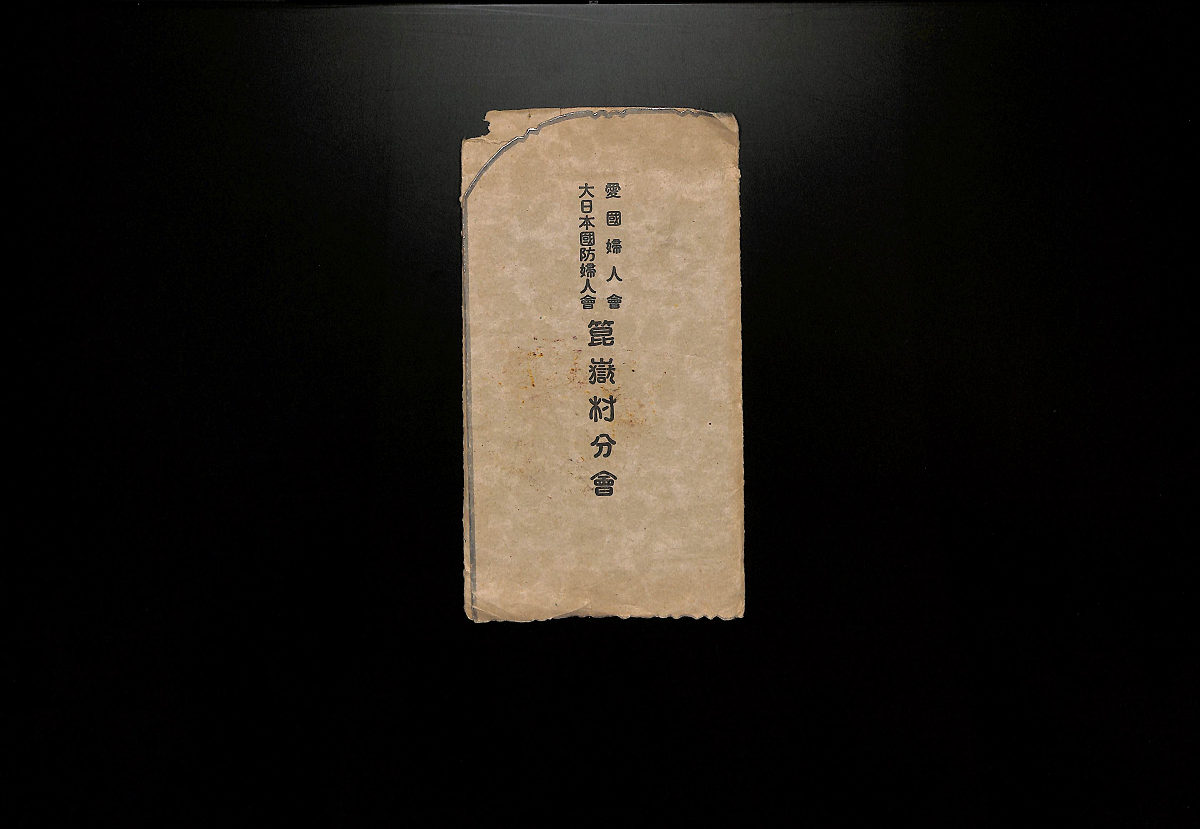 愛國婦人會
大日本國防婦人會
箟嶽村分會